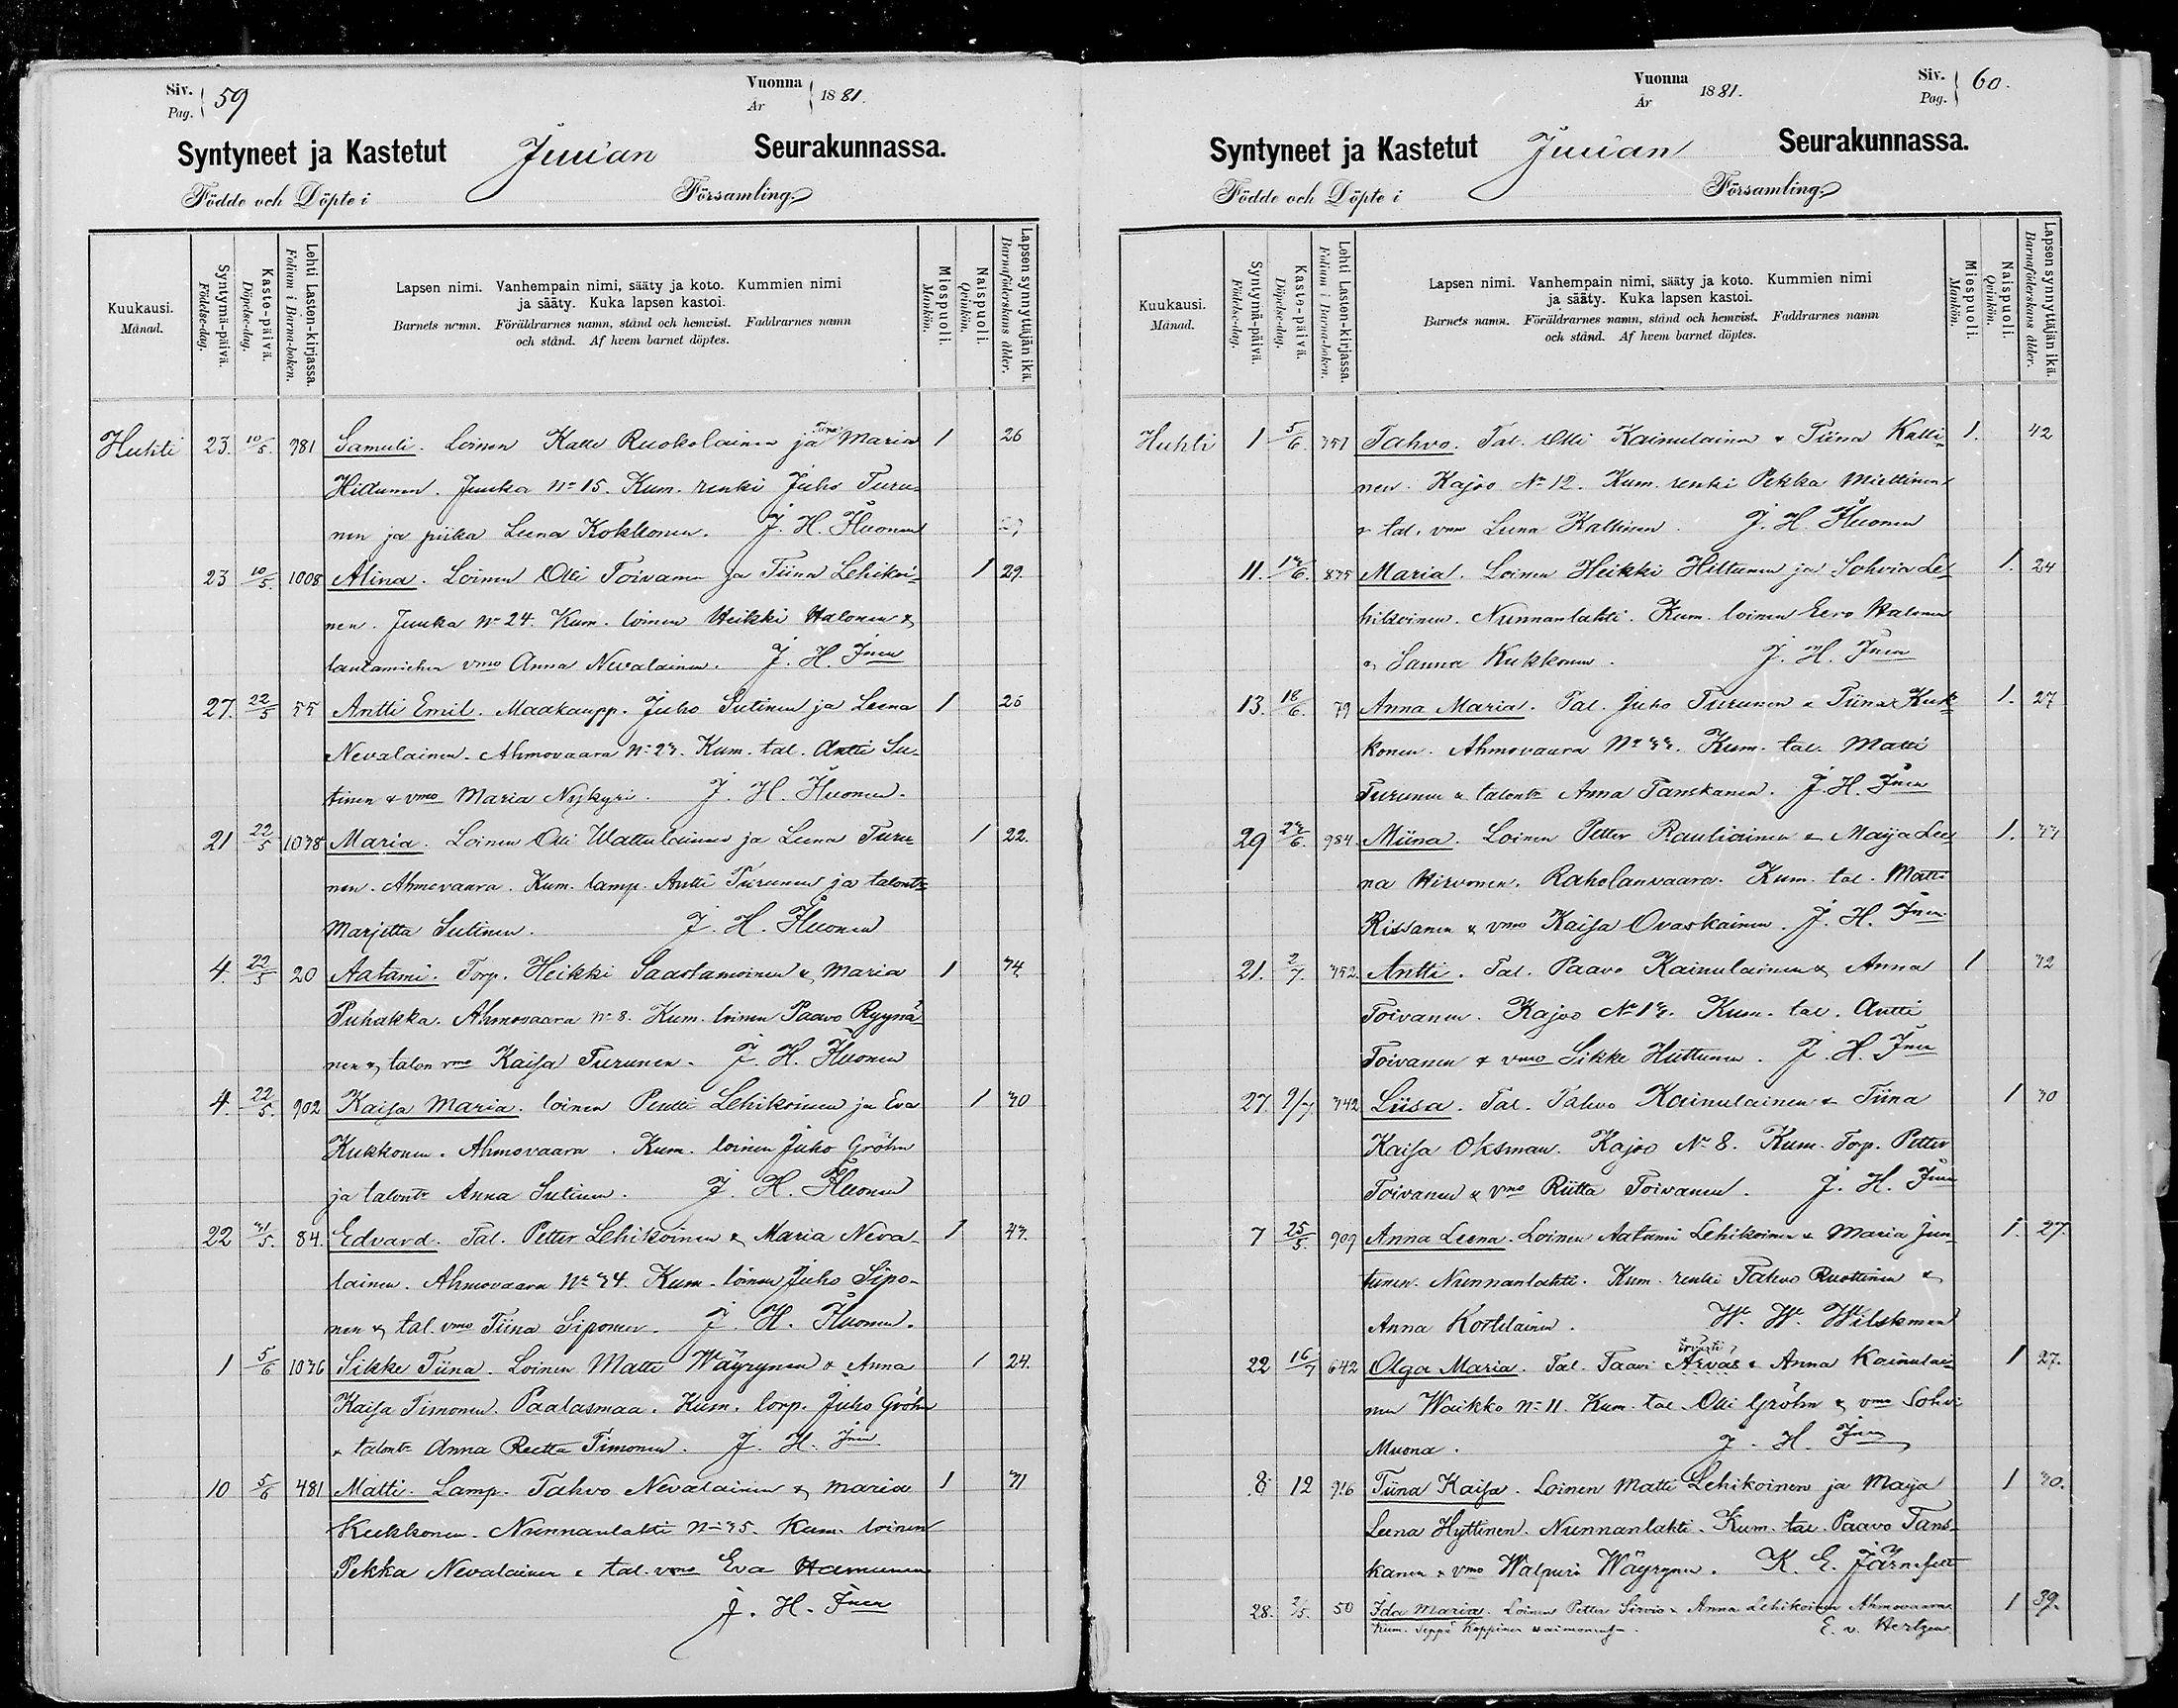 Siv. Pag. 59
Vuonna År 1881.
Syntyneet ja Kastetut Juuan Seurakunnassa.
Födde och Döpte i Församling.
Kuukausi. Månad.
Syntymä-päivä. Födelse-dag.
Kaste-päivä. Döpelse-dag.
Lehti Lasten-kirjassa. Folium i Barna-boken.
Lapsen nimi. Vanhempain nimi, sääty ja koto. Kummien nimi
ja sääty. Kuka lapsen kastoi.
Barnets namn. Föräldrarnes namn, stånd och hemvist. Faddrarnes namn
och stånd. Af hvem barnet döptes.
Miespuoli. Mankön.
Naispuoli. Qvinkön.
Lapsen synnyttäjän ikä. Barnaföderskans ålder.
Huhti 23. 10/5. 981 Samuli. Loinen Kalle Ruokolainen ja Maria 1 26
Hiltunen. Juuka No 15. Kum. renki Juho Turu-
nen ja piika Leena Kokkonen. J. H. Åhuonen
23 10/5. 1008 Alina. Loinen Olli Toivanen ja Tiina Lehikoi- 1 29.
nen. Juuka No 24. Kum. loinen Heikki Halonen &
lautamiehen vmo Anna Nevalainen. J. H. Ånen
27. 22/5 55 Antti Emil. Maakaupp. Juho Sutinen ja Leena 1 26
Nevalainen. Ahmovaara No 23. Kum. tal. Antti Su-
tinen & vmo Maria Nykyri. J. H. Åhuonen.
21 22/5 1038 Maria. Loinen Olli Wattulainen ja Leena Turu- 1 22.
nen. Ahmovaara. Kum. lamp. Antti Turunen ja talontr
Marjetta Sutinen. J. H. Åhuonen
4. 22/5 20 Aatami. Torp. Heikki Saastamoinen & Maria 1 34.
Puhakka. Ahmovaara No 8. Kum. loinen Paavo Ryynä-
nen & talon vmo Kaisa Turunen. J. H. Åhuonen
4. 22/5. 902 Kaisa Maria. loinen Pentti Lehikoinen ja Eva 1 30
Kukkonen. Ahmovaara. Kum. loinen Juho Gröhn
ja talontr Anna Sutinen. J. H. Åhuonen
22 31/5. 84. Edvard. Tal. Petter Lehikoinen & Maria Neva- 1 43.
lainen. Ahmovaara No 34. Kum. loinen Juho Sipo-
nen & tal. vmo Tiina Siponen. J. H. Åhuonen.
1 5/6 1036 Sikke Tiina. Loinen Matti Wäyrynen & Anna 1 24.
Kaisa Timonen. Paalasmaa. Kum. torp. Juho Gröhn
& talontr Anna Reetta Timonen. J. H. Ånen
10 5/6 481 Matti. Lamp. Tahvo Nevalainen & Maria 1 31
Kukkonen. Nunnanlahti No 35. Kum. loinen
Pekka Nevalainen & tal. vmo Eva
J. H. Ånen
Siv. Pag. 60.
Vuonna År 1881.
Syntyneet ja Kastetut Juuan Seurakunnassa.
Födde och Döpte i Församling.
Kuukausi. Månad.
Syntymä-päivä. Födelse-dag.
Kaste-päivä. Döpelse-dag.
Lehti Lasten-kirjassa. Folium i Barna-boken.
Lapsen nimi. Vanhempain nimi, sääty ja koto. Kummien nimi
ja sääty. Kuka lapsen kastoi.
Barnets namn. Föräldrarnes namn, stånd och hemvist. Faddrarnes namn
och stånd. Af hvem barnet döptes.
Miespuoli. Mankön.
Naispuoli. Qvinkön.
Lapsen synnyttäjän ikä. Barnaföderskans ålder.
Huhti 1 5/6. 351 Tahvo. Tal. Olli Kainulainen & Tiina Kalli- 1. 42
nen. Kajoo No 12. Kum. renki Pekka Miettinen
& tal. vmo Leena Kallinen. J. H. Åhuonen
11. 13/6. 835 Maria. Loinen Heikki Hiltunen ja Sohvia Le- 1. 24
hikoinen. Nunnanlahti. Kum. loinen Eero Halonen
& Sanna Kukkonen. J. H. Ånen
13. 18/6. 79 Anna Maria. Tal. Juho Turunen & Tiina Kuk- 1. 27
konen. Ahmovaara No 33. Kum. tal. Matti
Turunen & talontr Anna Tanskanen. J. H. Ånen
29 23/6. 984. Miina. Loinen Petter Rautiainen & Maija Lee- 1. 33
na Hirvonen. Raholanvaara. Kum. tal. Matti
Rissanen & vmo Kaisa Ovaskainen. J. H. Ånen
21. 2/7. 352. Antti. Tal. Paavo Kainulainen & Anna 1 32
Toivanen. Kajoo No 13. Kum. tal. Antti
Toivanen & vmo Sikke Huttunen. J. H. Ånen
27. 9/7. 342. Liisa. Tal. Tahvo Kainulainen & Tiina 1 30
Kaisa Oksman. Kajoo No 8. Kum. Torp. Petter
Toivanen & vmo Riitta Toivanen. J. H. Ånen
7 25/5. 909 Anna Leena. Loinen Aatami Lehikoinen & Maria Jun- 1. 27.
tunen. Nunnanlahti. Kum. renki Tahvo Ruottinen &
Anna Kortelainen. W. W. Wilskman
22 16/7 642 Olga Maria. Tal. Taavi Arvas & Anna Kainulai- 1 27.
nen Waikko No 11. Kum. tal. Olli Gröhn & vmo Sohvi
Muona. J. H. Ånen
8 12 916 Tiina Kaisa. Loinen Matti Lehikoinen ja Maija 1 30.
Leena Hyttinen. Nunnanlahti. Kum. tal. Paavo Tans-
kanen & vmo Walpuri Wäyrynen. K. E. Järnefelt
28. 2/5. 50 Ida Maria. Loinen Petter Sirviö & Anna Lehikoinen Ahmovaara. 1 39.
Kum. Seppä Koppinen vaimonensa. E. v. Hertzen.